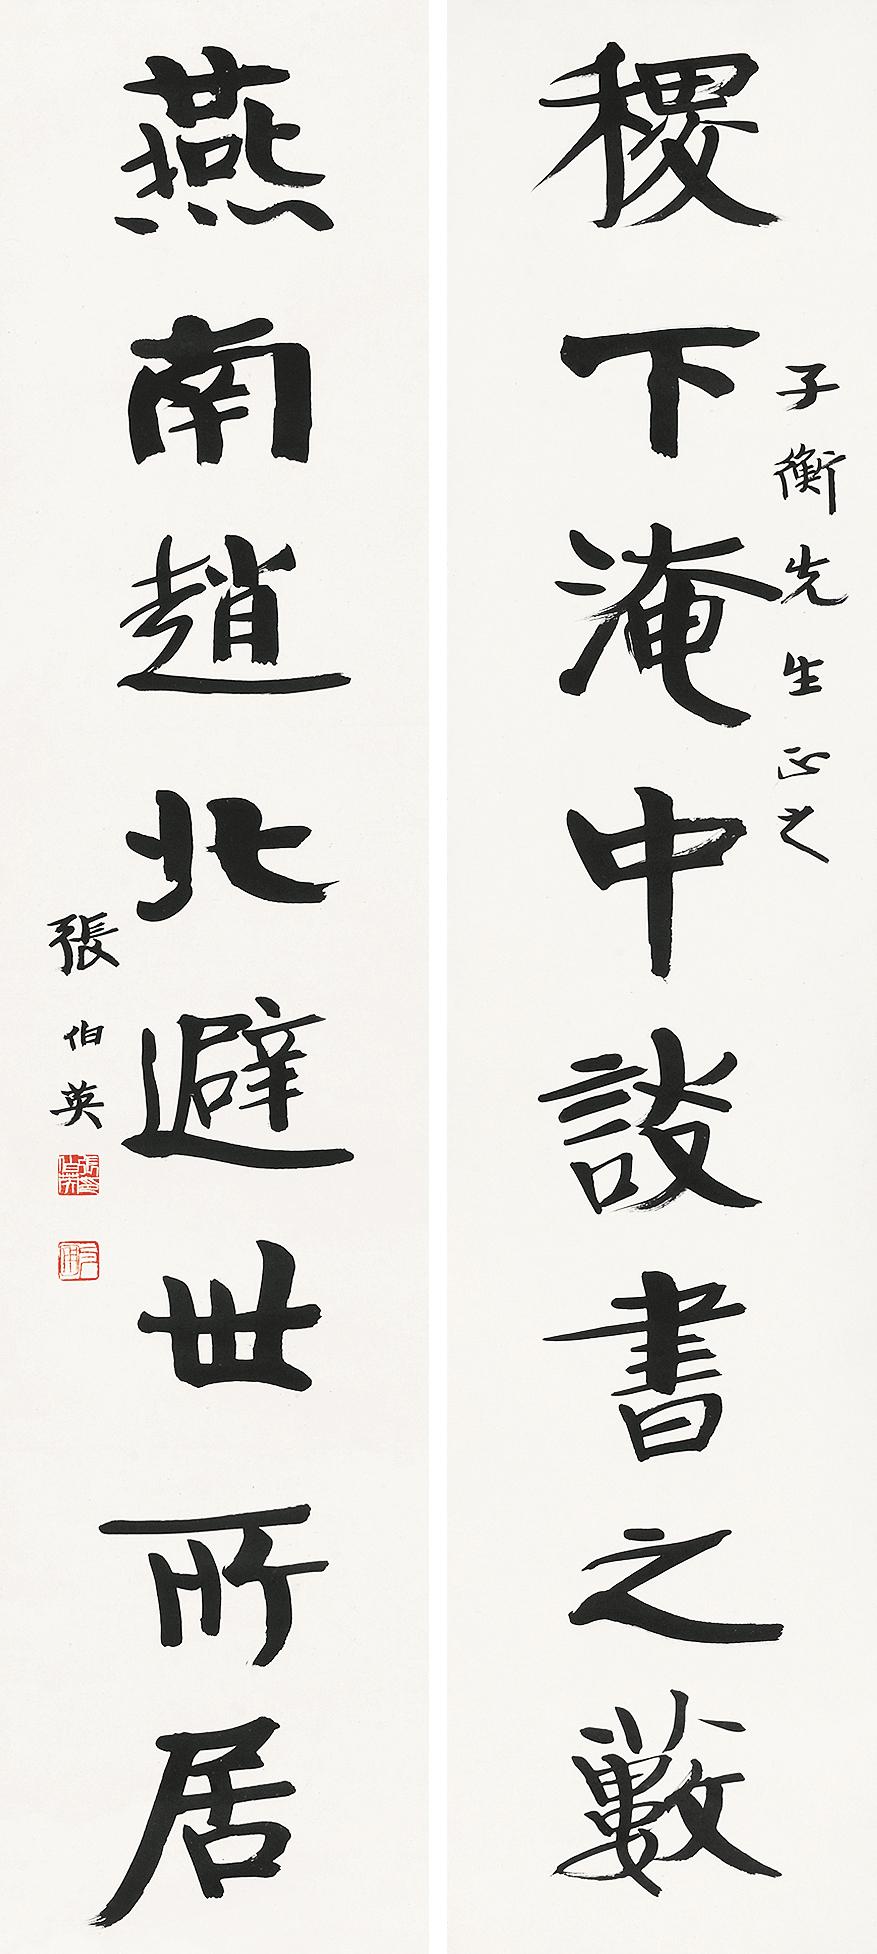 稷下淹中談書之藪
子衡先生正之
燕南趙北避世所居
張伯英
張伯英印